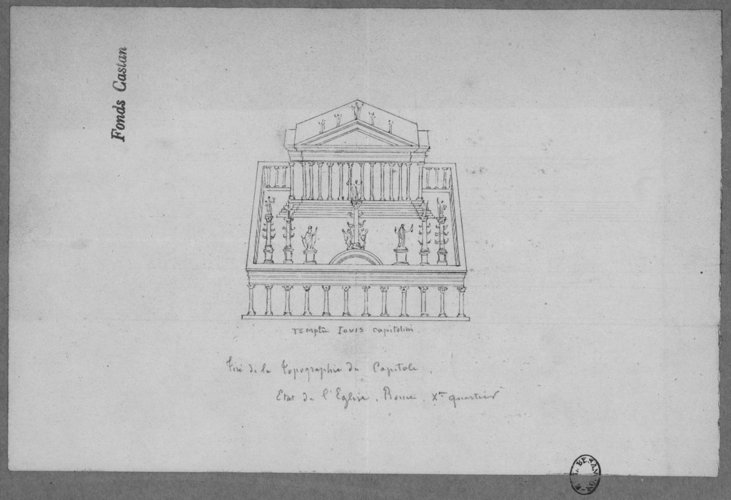 Fonds Castan
TEmplū IOVIS Capitolini
Tiré de la Topographie du Capitole.
Etat de l'Eglise. Rome. Xe quartier